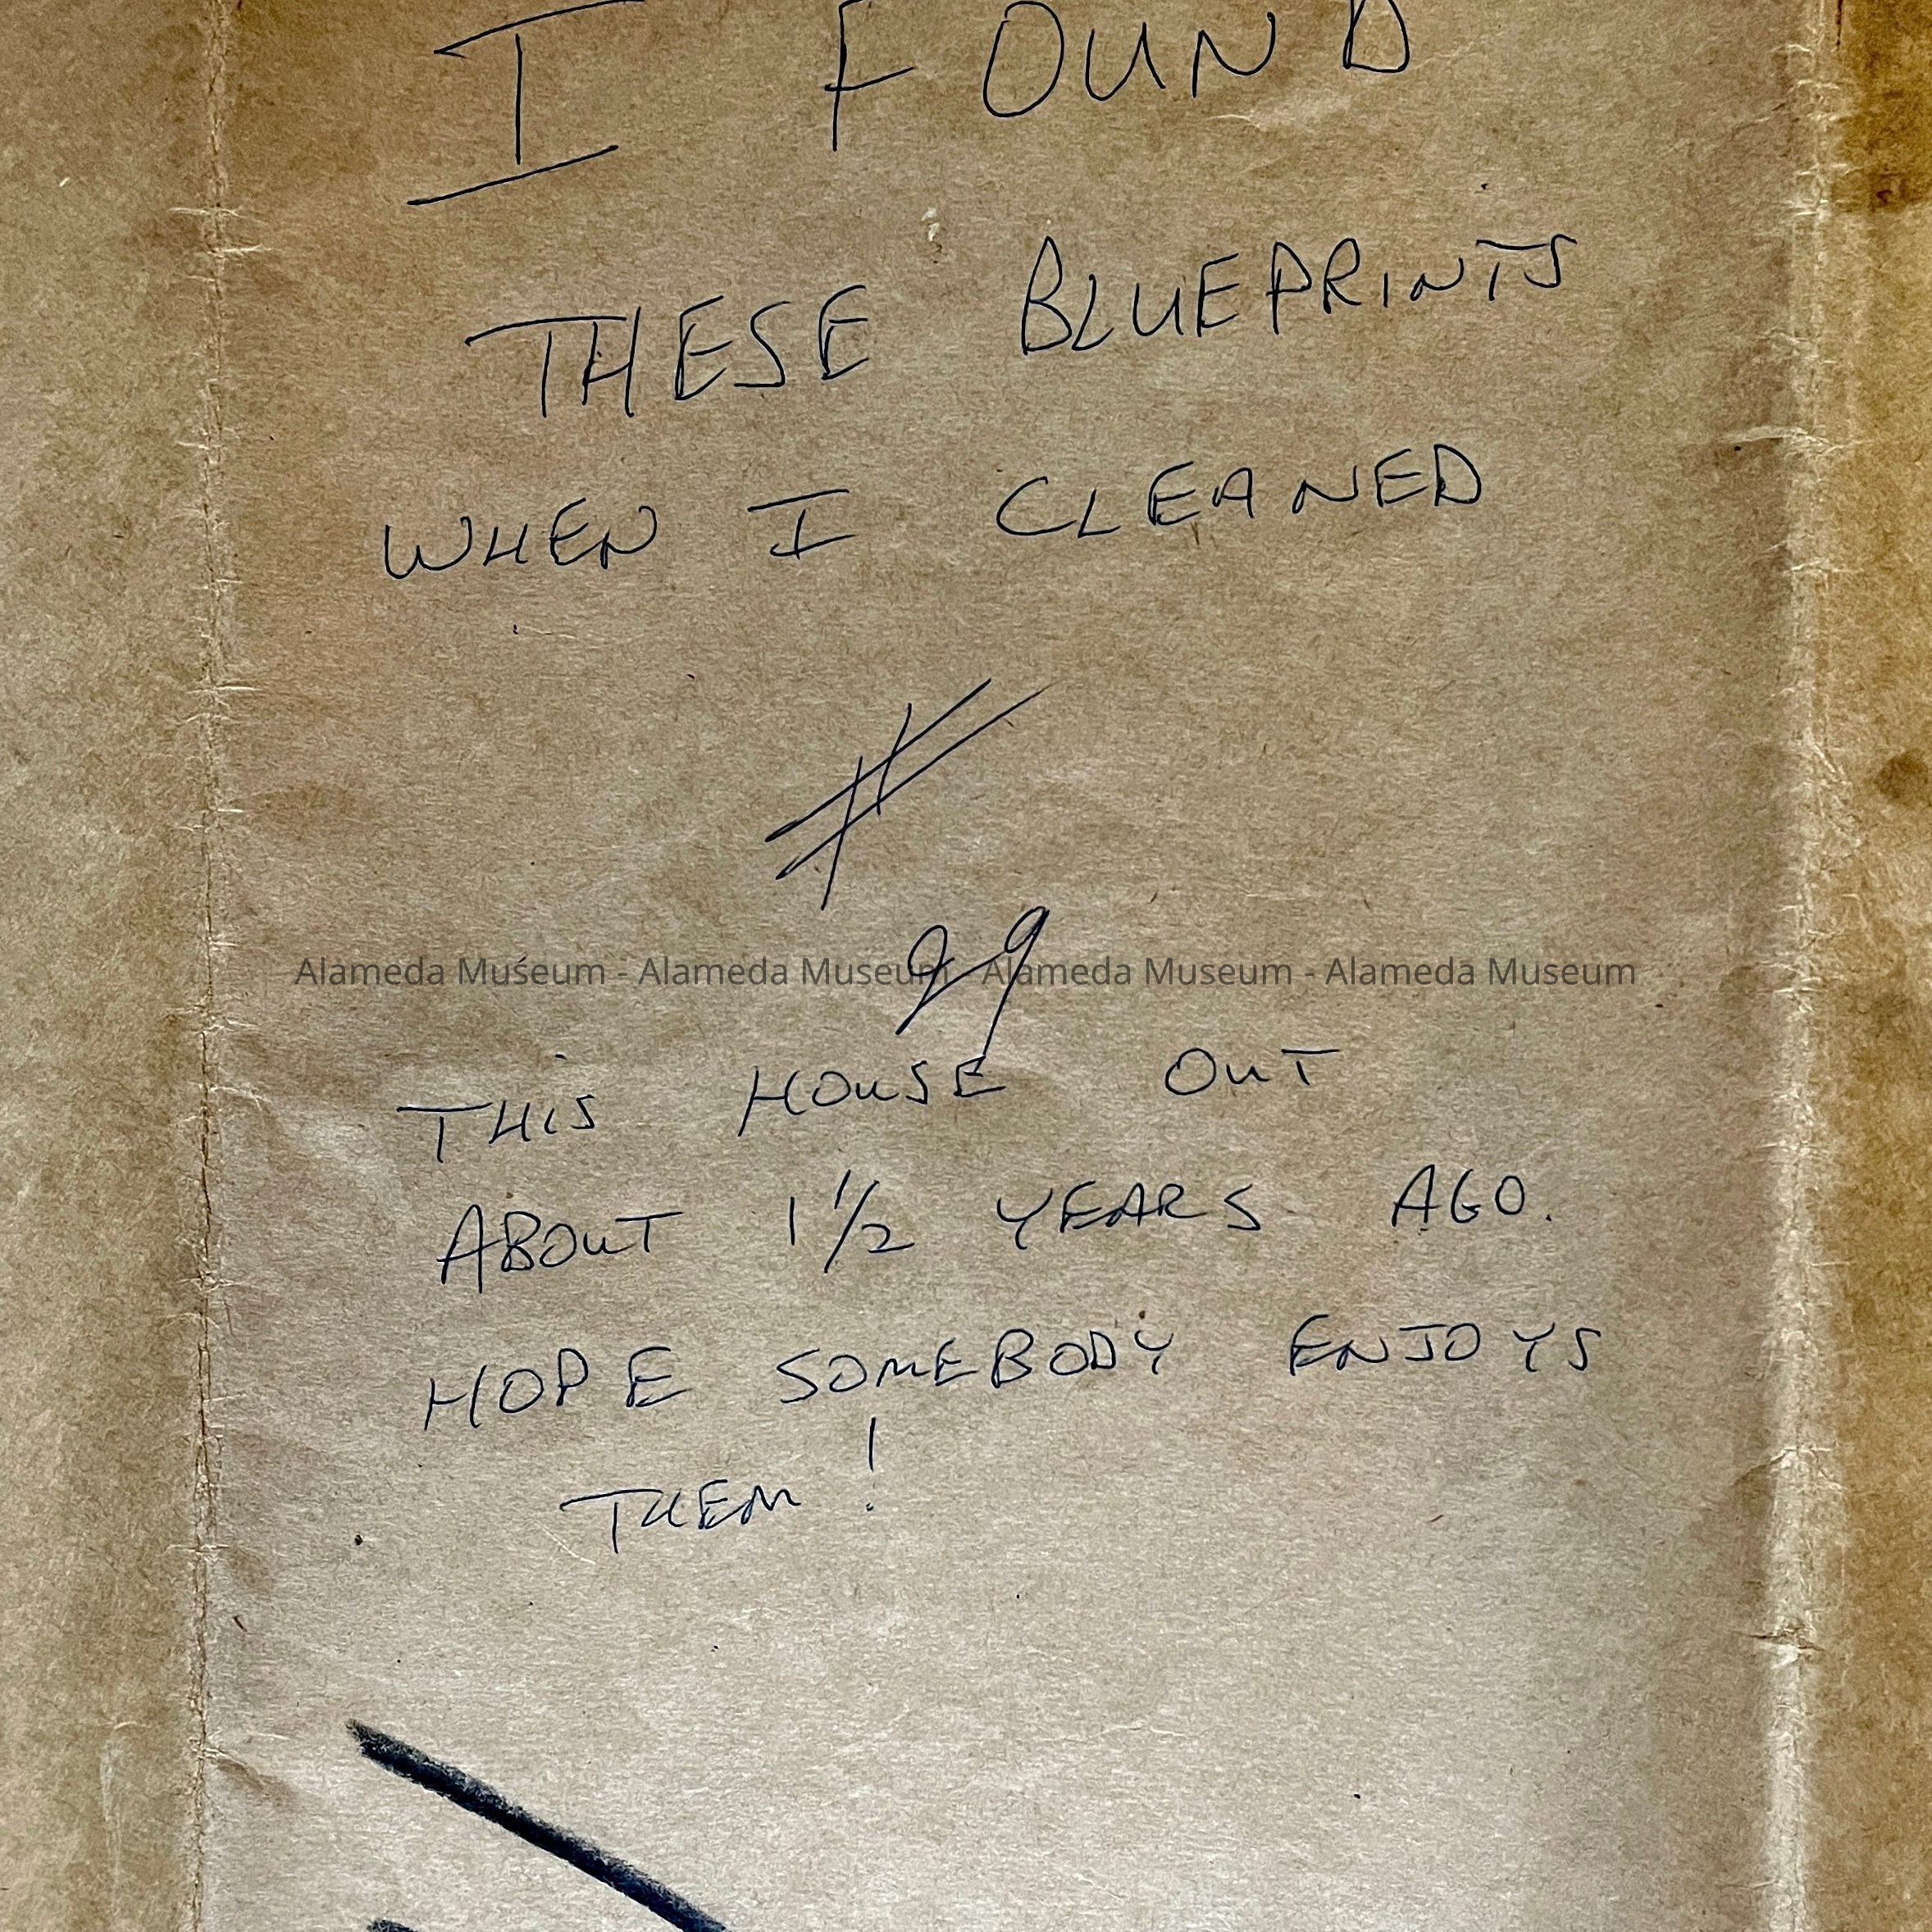 I FOUND
THESE BLUEPRINTS
WHEN I CLEANED
#
29
Alameda Museum - Alameda Museum - Alameda Museum - Alameda Museum
THIS HOUSE OUT
ABOUT 1 1/2 YEARS AGO.
HOPE SOMEBODY ENJOYS
THEM!